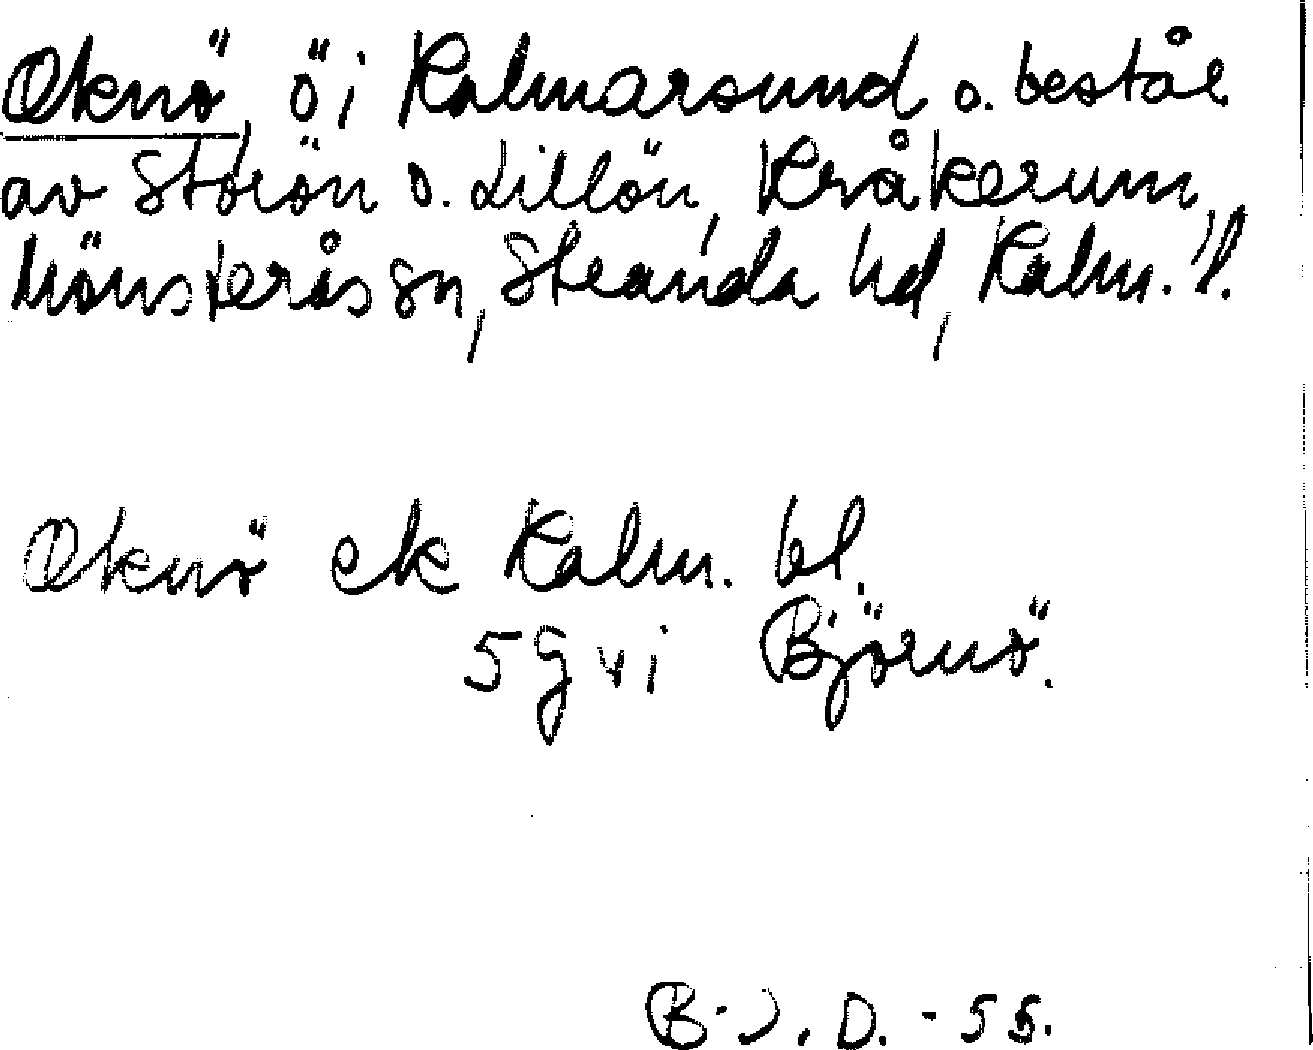 Oknö, ö i Kalmarsund o. bestål
av Storön o. Lillön, Kråkerum,
Mönsterås sn, Stranda hd, Kalm. l.
Oknö ek Kalm. bl.
5 G vi Björnö.
B.J.D. - 55.